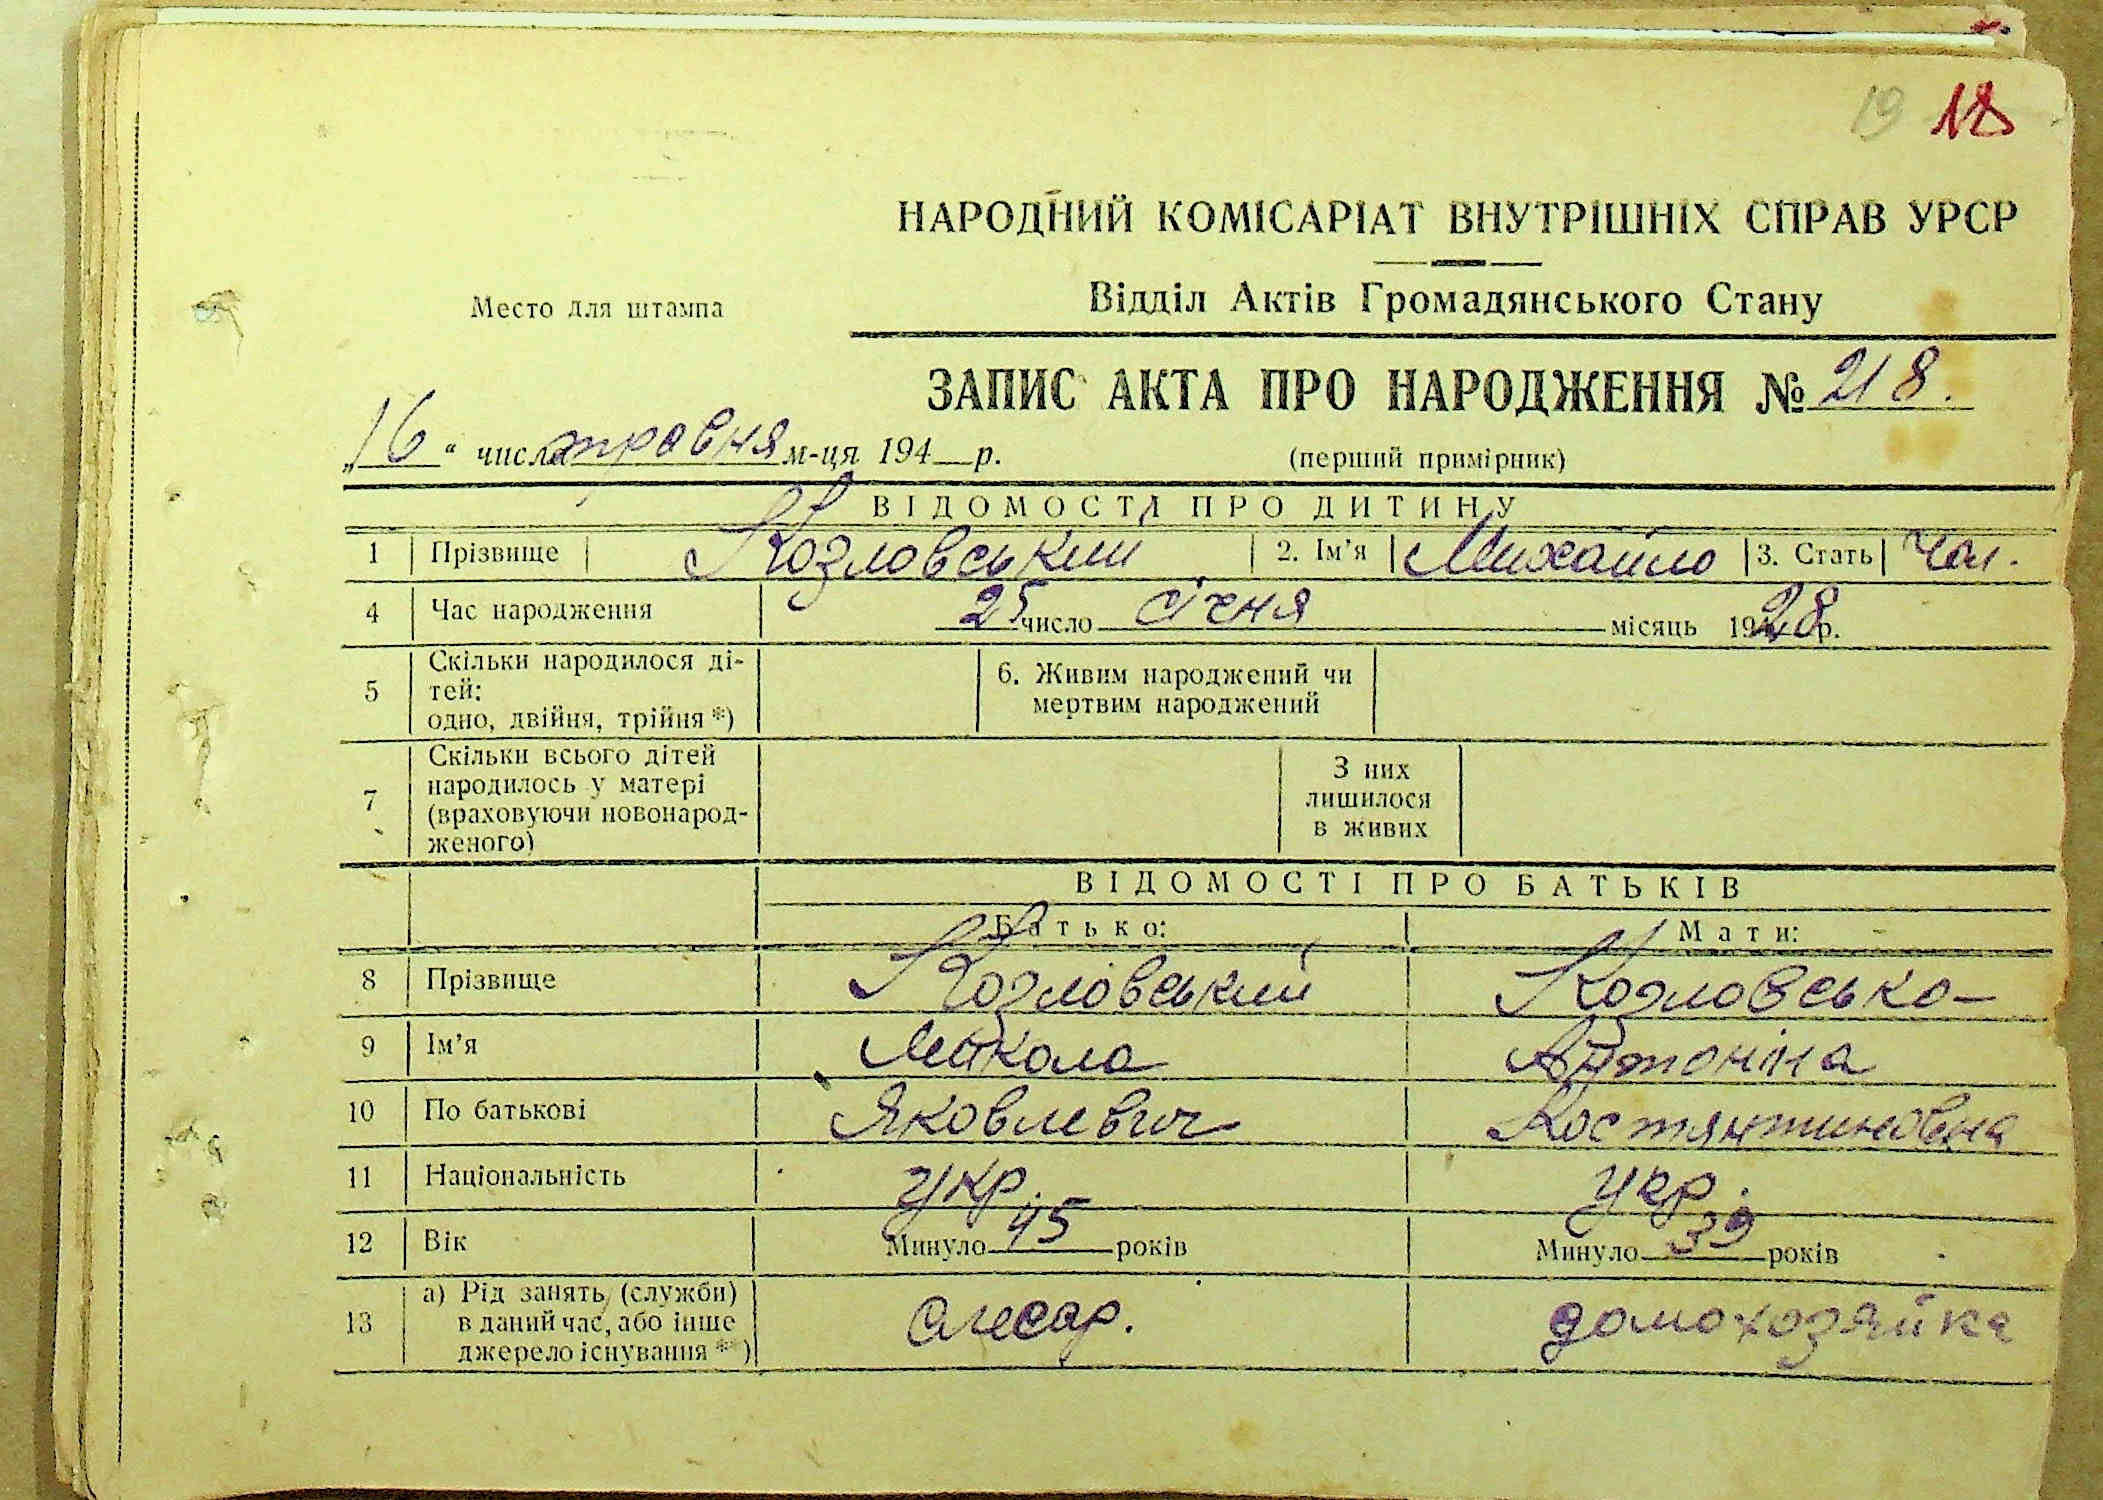 19 18
НАРОДНИЙ КОМІСАРІАТ ВНУТРІШНІХ СПРАВ УРСР
Відділ Актів Громадянського Стану
Место для штампа
ЗАПИС АКТА ПРО НАРОДЖЕННЯ № 218.
„16“ числа травня м-ця 194 р. (перший примірник)
ВІДОМОСТІ ПРО ДИТИНУ
1 Прізвище Козловський 2. Ім'я Михайло 3. Стать Чол.
4 Час народження 25 число січня місяць 1928 р.
5 Скільки народилося ді-
тей:
одно, двійня, трійня *)
6. Живим народжений чи
мертвим народжений
7 Скільки всього дітей
народилось у матері
(враховуючи новонарод-
женого)
З них
лишилося
в живих
ВІДОМОСТІ ПРО БАТЬКІВ
Батько: Мати:
8 Прізвище Козловський Козловсько
9 Ім'я Микола Антоніна
10 По батькові Яковлевич Костянтиновна
11 Національність укр. укр.
12 Вік Минуло 45 років Минуло 39 років
13 а) Рід занять (служби)
в даний час, або інше
джерело існування **)
слесар. домохозяйка